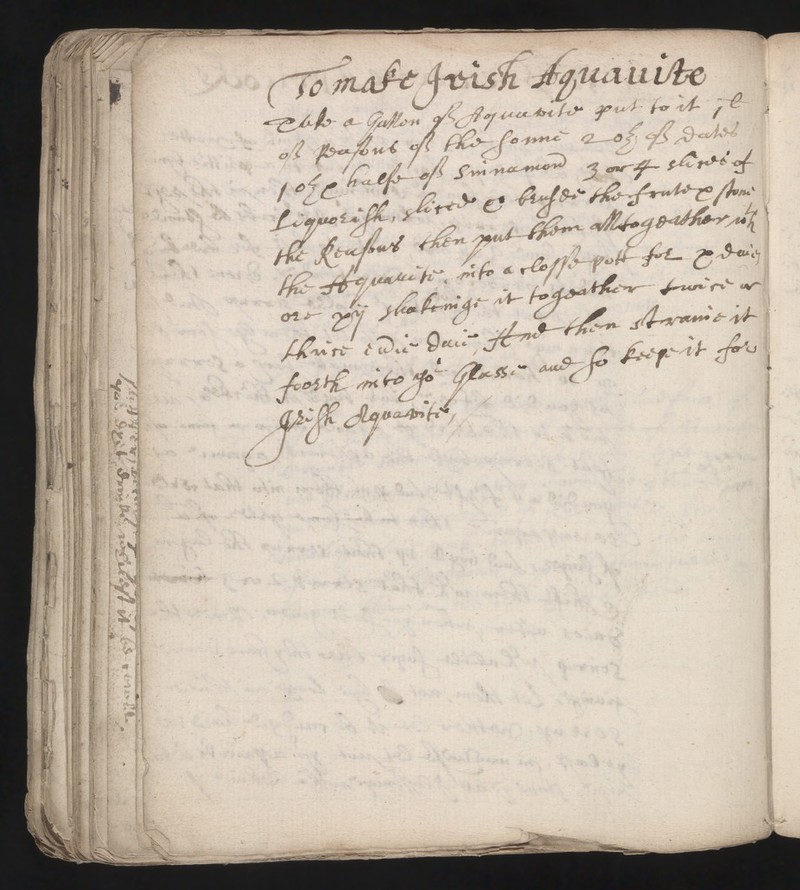 To make Irish Aquauite
Take a Gallon of Aquavite put to it 1 l
of Reasons of the sonne 2 oz of dates
1 oz & halfe of Sinnamon 3 or 4 slices of
Liquorish, sliced & bruse the frute & stone
the Reasons then put them all togeather wth
the Aquavite, into a closse pott for x daies
ore xij shakeinge it togeather twice or
thrice euie daie, And then straine it
foorth into yor Glasse and so keepe it for
Irish Aquavite,